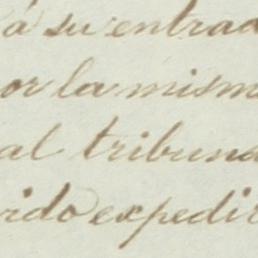 á su entrad
or la mism
al tribuna
rido expedir